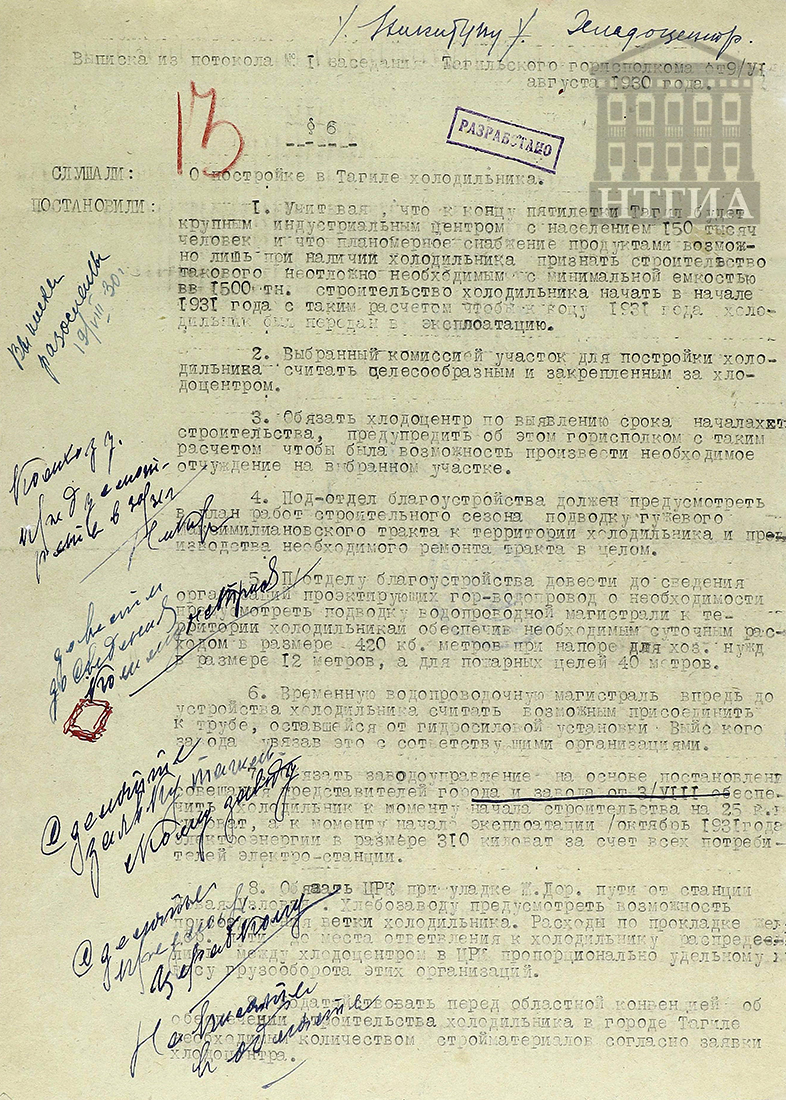 Хладоцентр.
Выписка из потокола № I заседания Тагильского горисполкома от9/VI
августа 1930 года.
13
§ 6
РАЗРАБОТАНО
НТГИА
СЛУШАЛИ: О постройке в Тагиле холодильника.
ПОСТАНОВИЛИ:
I. Учитывая, что к концу пятилетки Тагил будет
крупным индустриальным центром с населением 150 тысяч
человек и что планомерное снабжение продуктами возмож-
но лишь при наличии холодильника признать строительство
такового неотложно необходимым с минимальной емкостью
вв 1500 тн. строительство холодильника начать в начале
1931 года с таким расчетом чтобы к концу 1931 года холо-
дильник был передан в эксплоатацию.
2. Выбранный комиссией участок для постройки холо-
дильника считать целесообразным и закрепленным за хло-
доцентром.
3. Обязать хлодоцентр по выявлению срока начала
строительства, предупредить об этом горисполком с таким
расчетом чтобы была возможность произвести необходимое
отчуждение на выбранном участке.
4. Под-отдел благоустройства должен предусмотреть
в план работ строительного сезона подводку гужевого
тракта к территории холодильника и
изводства необходимого ремонта тракта в целом.
5. П/отделу благоустройства довести до сведения
организаций проэктирующих гор-водопровод о необходимости
предусмотреть подводку водопроводной магистрали к те-
ритории холодильникаи обеспечив необходимым суточным рас-
ходом в размере 420 кб. метров при напоре для хоз. нужд
в размере 12 метров, а для пожарных целей 40 метров.
6. Временную водопроводочную магистраль впредь до
устройства холодильника считать возможным присоединить
к трубе, оставшейся от гидросиловой установки Выйского
завода увязав это с сответствущими организациями.
Обязать заводоуправление на основе постановлени
совещания представителей города и завода от 3/VIII обеспе-
чить холодильник к моменту начала строительства на 25
киловат, а к моменту начала эксплоатации /октябрь 1931года
электроэнергии в размере 310 киловат за счет всех потреби-
телей электро-станции.
8. Обязать ЦРК при уладке Ж.Дор. пути от станции
Хлебозаводу предусмотреть возможность
ветки холодильника. Расходы по прокладке
до места ответвления к холодильнику
между хлодоцентром и ЦРК пропорционально удельному
весу грузооборота этих организаций.
Ходатайствовать перед областной конвенцией об
обеспечении строительства холодильника в городе Тагиле
необходимым количеством стройматериалов согласно заявки
хлодоцентра.
Выписки
разосланы
19/VIII 30 г.
довести
до сведения
Сделайте
заводу
Сделайте
Написать